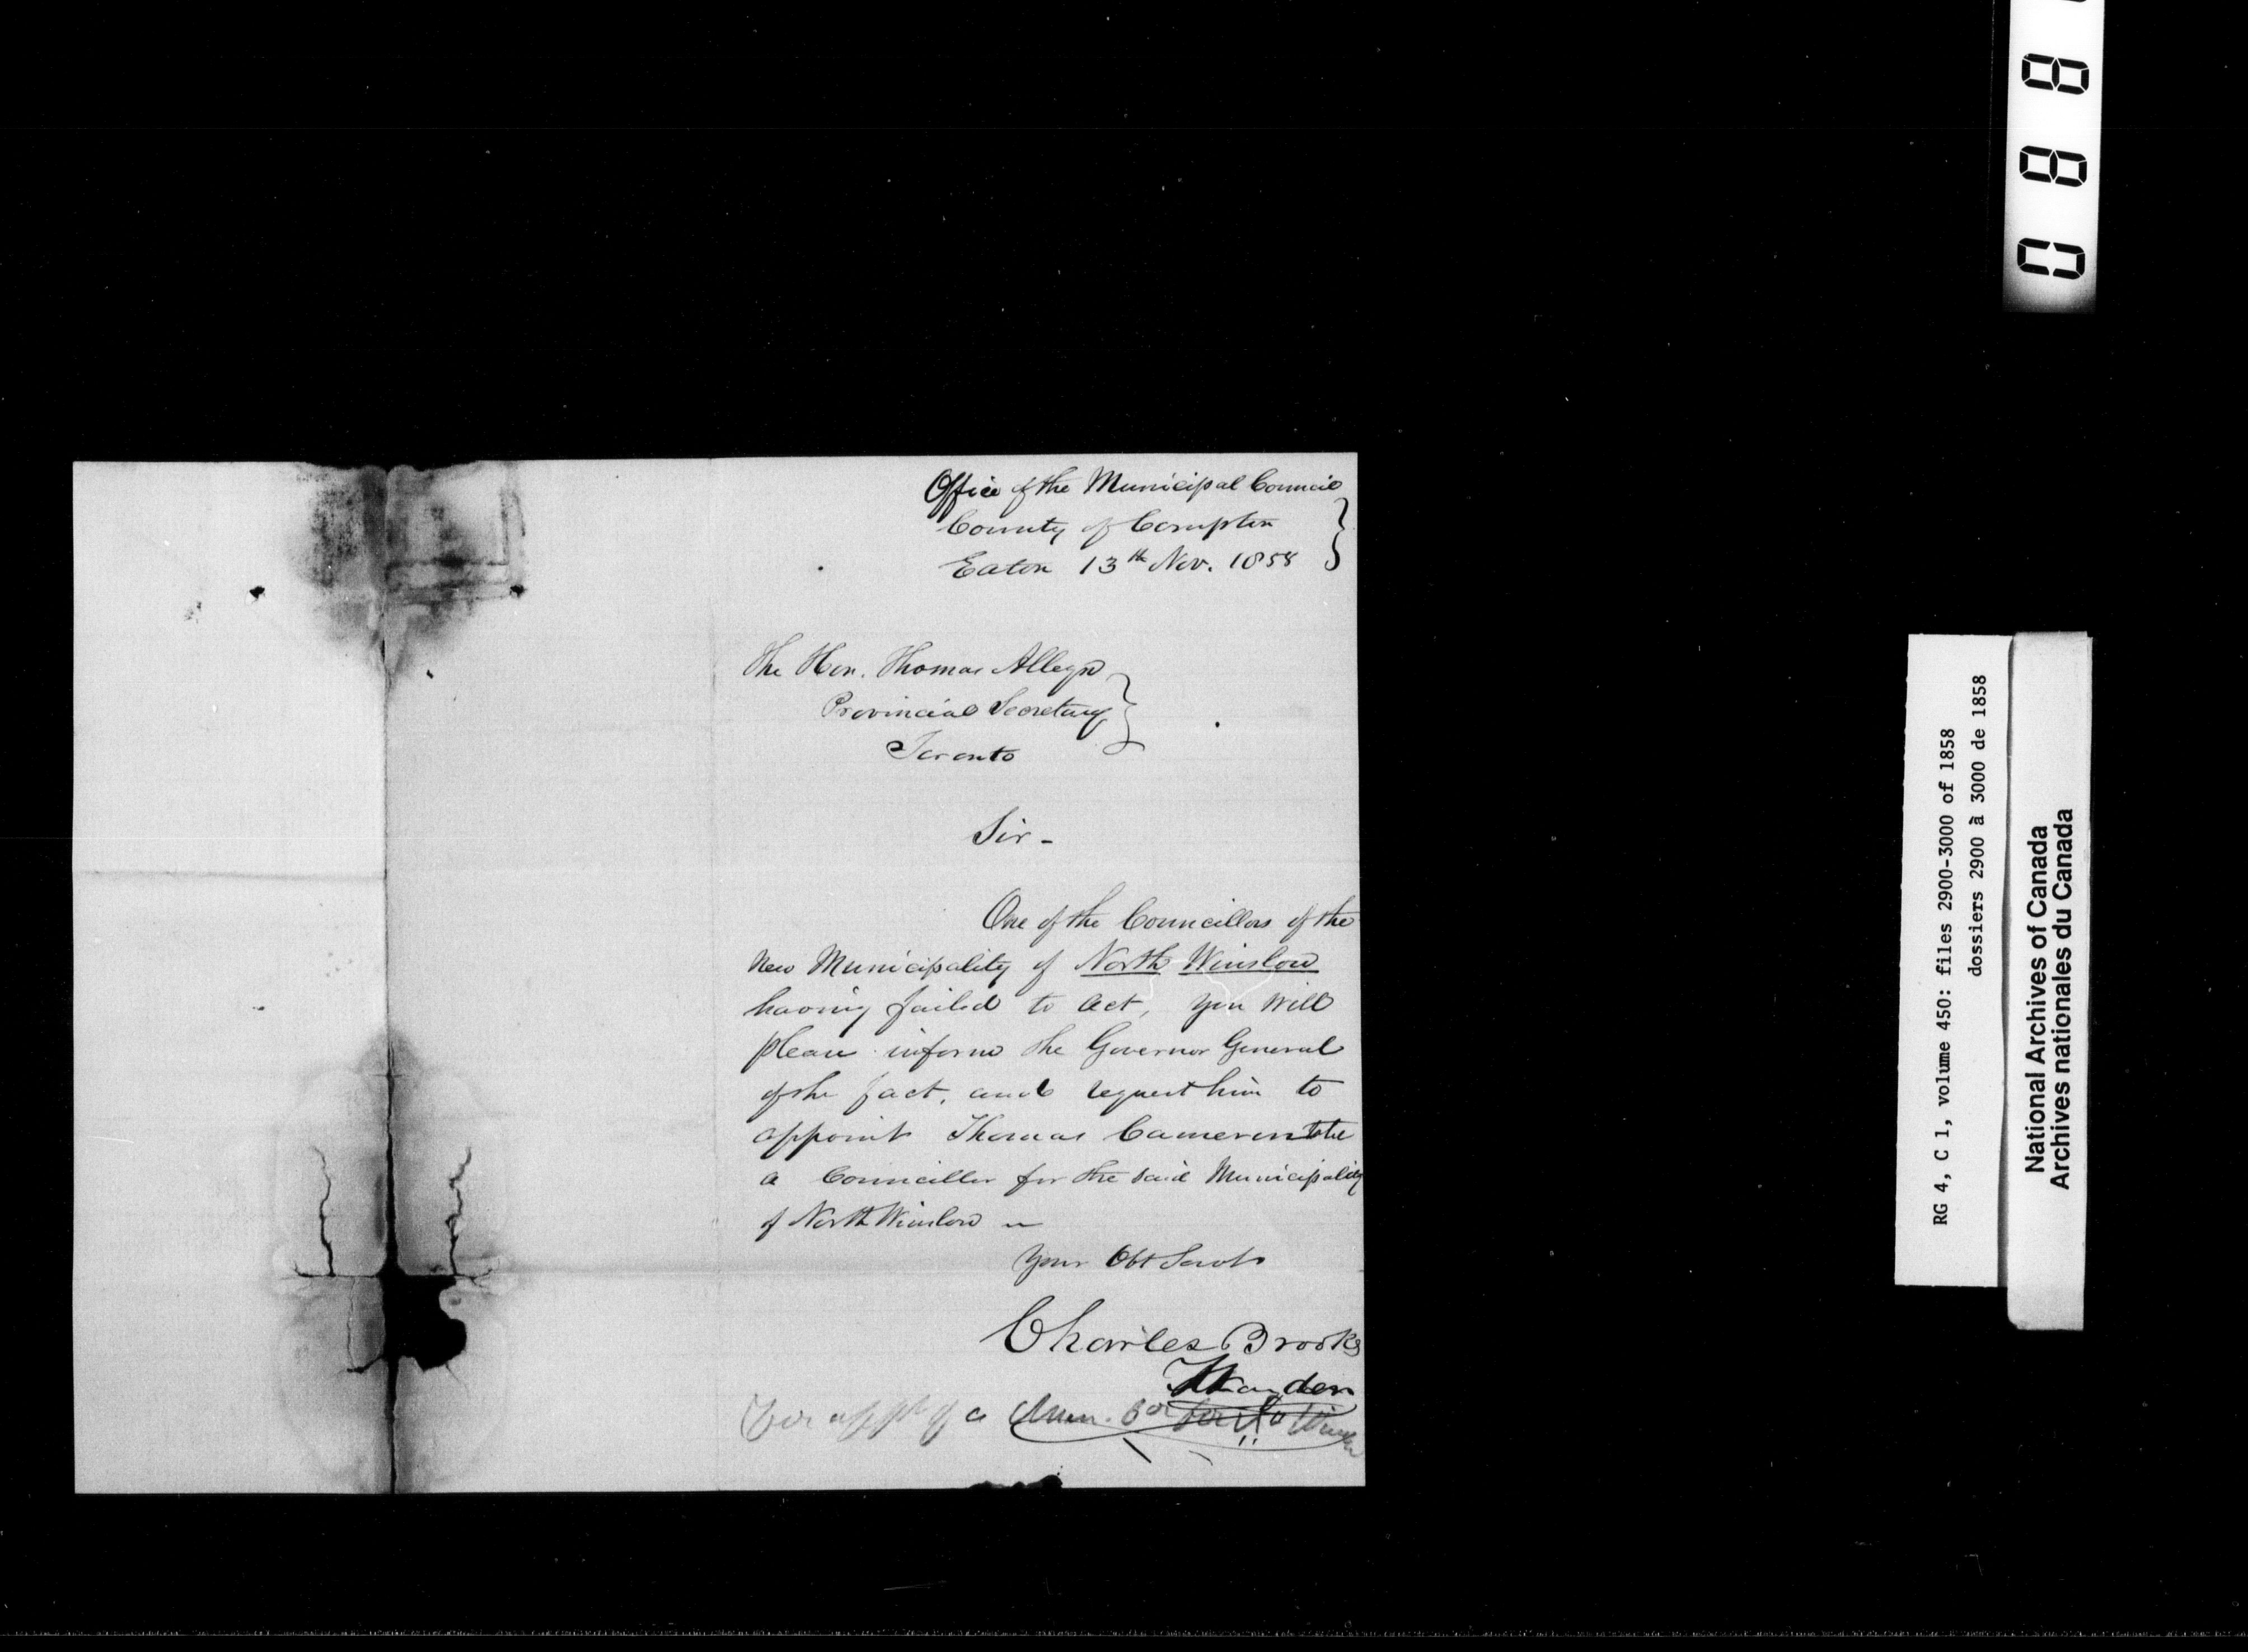 Office of the Municipal Council
County of Compton
Eaton 13th Nov. 1858
The Hon. Thomas Alleyn
Provincial Secretary
Toronto
Sir -
One of the Councillors of the
New Municipality of North Winslow
having failed to act, you will
please inform the Governor General
of the fact, and request him to
appoint Thomas Cameron to be
a Councillor for the said Municipality
of North Winslow
Your Obt Servt
Charles Brooks
Warden
for appt of a Mun. Cor for No Winslow
RG 4, C 1, volume 450: files 2900-3000 of 1858
dossiers 2900 à 3000 de 1858
National Archives of Canada
Archives nationales du Canada
0 8 8